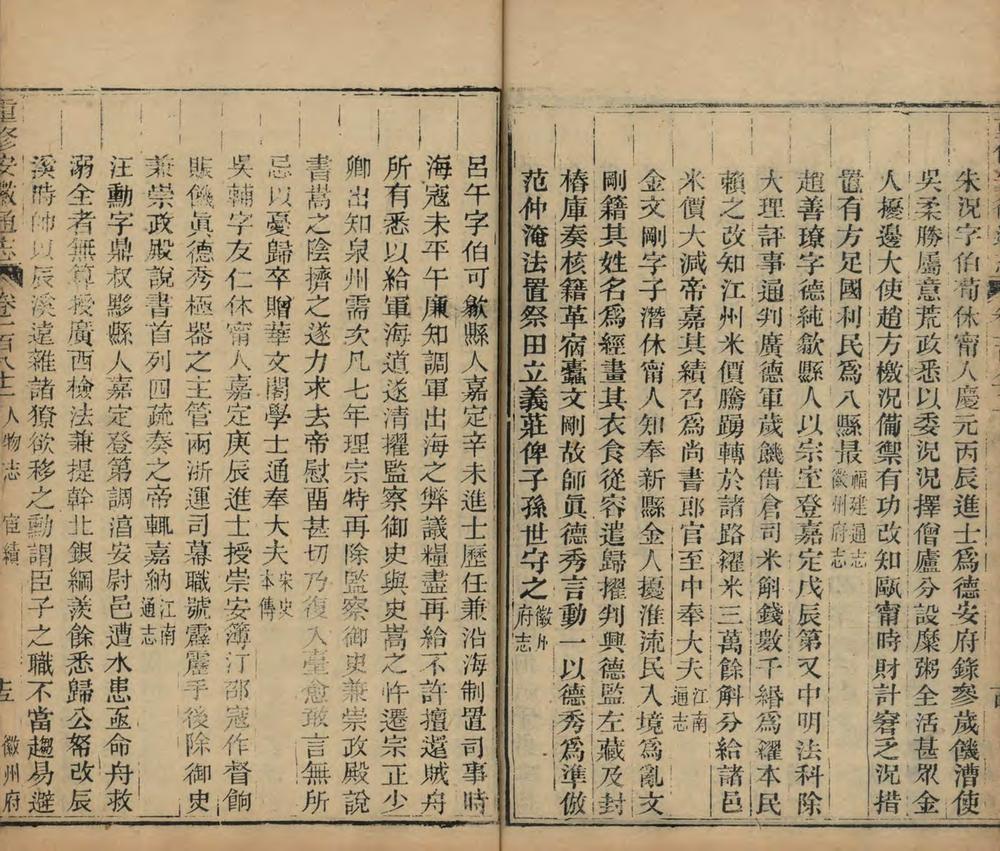 朱況字伯荀休甯人慶元丙辰進士爲德安府錄參歲饑漕使
吳柔勝屬意荒政悉以委況況擇僧廬分設糜粥全活甚眾金
人擾邊大使趙方檄況備禦有功改知歐甯時財計窘乏況措
置有方足國利民爲八縣最福建通志徽州府志
趙善璙字德純歙縣人以宗室登嘉定戊辰第又中明法科除
大理評事通判廣德軍歲饑借倉司米斛錢數千緡爲糴本民
賴之改知江州米價騰踴轉於諸路糴米三萬餘斛分給諸邑
米價大減帝嘉其績召爲尚書郎官至中奉大夫江南通志
金文剛字子潛休甯人知奉新縣金人擾淮流民入境爲亂文
剛籍其姓名爲經畫其衣食從容遣歸擢判興德監左藏及封
樁庫奏核籍革宿蠹文剛故師眞德秀言動一以德秀爲準倣
范仲淹法置祭田立義莊俾子孫世守之徽州府志
呂午字伯可歙縣人嘉定辛未進士歷任兼沿海制置司事時
海寇未平午廉知調軍出海之弊議糧盡再給不許擅還賊舟
所有悉以給軍海道遂清擢監察御史與史嵩之忤遷宗正少
卿出知泉州需次凡七年理宗特再除監察御史兼崇政殿說
書嵩之陰擠之遂力求去帝慰留甚切乃復入臺愈敢言無所
忌以憂歸卒贈華文閣學士通奉大夫宋史本傳
吳輔字友仁休甯人嘉定庚辰進士授崇安簿汀邵寇作督餉
賑饑眞德秀極器之主管兩浙運司幕職號霹靂手後除御史
兼崇政殿說書首列四疏奏之帝輒嘉納江南通志
汪勳字鼎叔黟縣人嘉定登第調湻安尉邑遭水患亟命舟救
溺全者無算授廣西檢法兼提幹北銀綱羨餘悉歸公帑改辰
溪時帥以辰溪遠雜諸獠欲移之勳謂臣子之職不當趨易避
重修安徽通志 卷一百八十二 人物志 宦績 徽州府